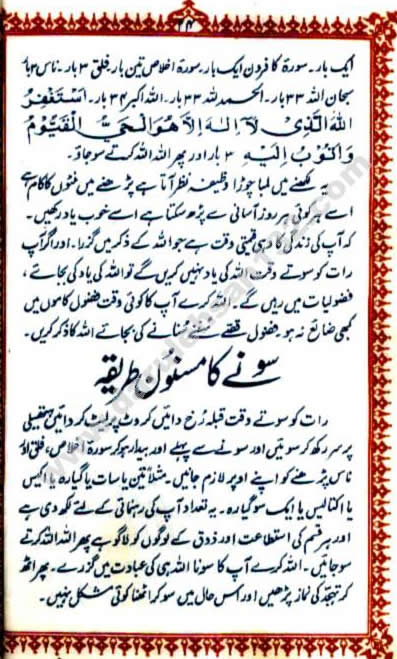 ۲۴
ایک بار۔ سورۃ کافرون ایک بار۔ سورۃ اخلاص تین بار۔ فلق ۳ بار۔ ناس ۳ بار
سبحان اللہ ۳۳ بار۔ الحمد للہ ۳۳ بار۔ اللہ اکبر ۳۴ بار۔ اَسْتَغْفِرُ
اللہَ الَّذِیْ لَآ اِلٰہَ اِلَّا ھُوَ الْحَیُّ الْقَیُّوْمُ
وَاَتُوْبُ اِلَیْہِ ۳ بار اور پھر اللہ اللہ کرتے سو جاؤ۔
یہ لکھنے میں لمبا چوڑا وظیفہ نظر آتا ہے پڑھنے میں منٹوں کا کام ہے
اسے ہر کوئی ہر روز آسانی سے پڑھ سکتا ہے اسے خوب یاد رکھیں۔
کہ آپ کی زندگی کا وہی قیمتی وقت ہے جو اللہ کے ذکر میں گزرا۔ اور اگر آپ
رات کو سوتے وقت اللہ کی یاد نہیں کریں گے تو اللہ کی یاد کی بجائے،
فضولیات میں رہیں گے۔ اللہ کرے آپ کا کوئی وقت فضول کاموں میں
کبھی ضائع نہ ہو۔ فضول قصّے سننے سنانے کی بجائے اللہ کا ذکر کریں۔
سونے کا مسنون طریقہ
رات کو سوتے وقت قبلہ رُخ دائیں کروٹ پر لیٹ کر دائیں ہتھیلی
پر سر رکھ کر سوئیں اور سونے سے پہلے اور بیدار ہو کر سورۃ اخلاص، فلق اور
ناس پڑھنے کو اپنے اوپر لازم جانیں۔ مثلاً تین یا سات یا گیارہ یا اکیس
یا اکتالیس یا ایک سو گیارہ۔ یہ تعداد آپ کی رہنمائی کے لئے لکھ دی ہے
اور ہر قسم کی استطاعت اور ذوق کے لوگوں کو لاگو ہے پھر اللہ اللہ کرتے
سو جائیں۔ اللہ کرے آپ کا سونا اللہ ہی کی عبادت میں گزرے۔ پھر اٹھ
کر تہجّد کی نماز پڑھیں اور اس حال میں سو کر اٹھنا کوئی مشکل نہیں۔